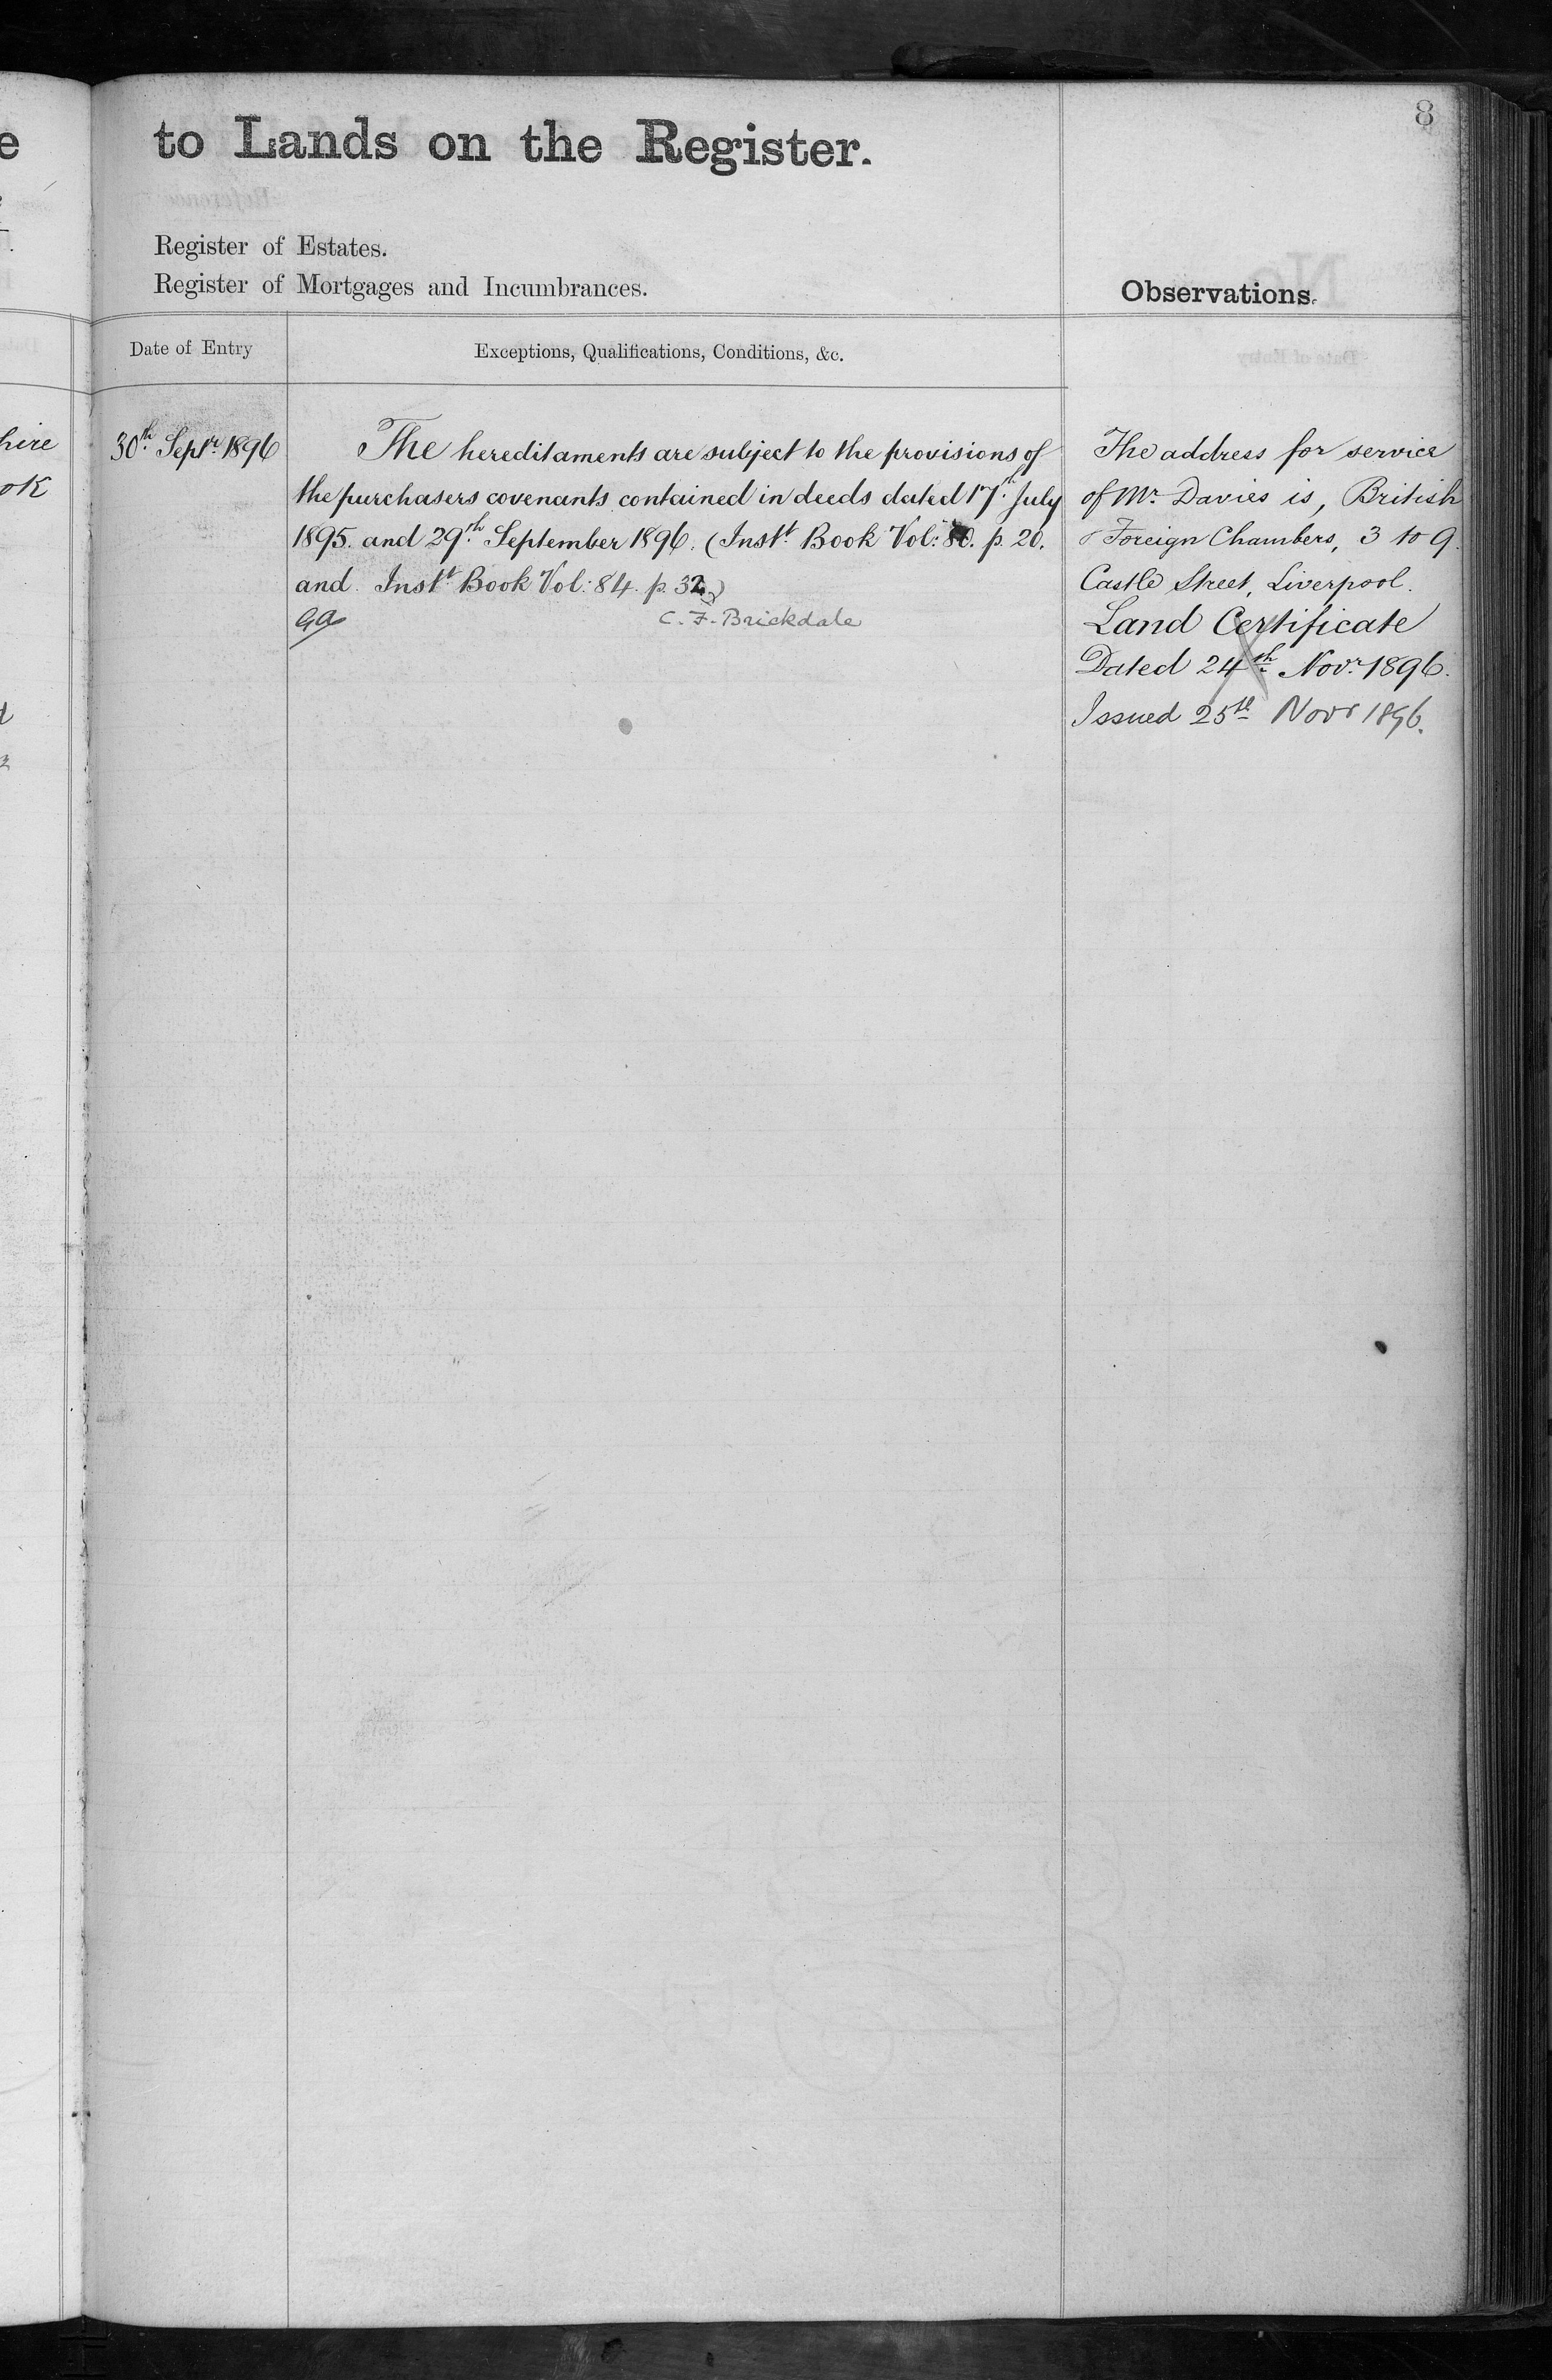 8
to Lands on the Register.
Register of Estates.
Register of Mortgages and Incumbrances.
Observations.
Date of Entry
Exceptions, Qualifications, Conditions, &c.
30th Septr 1896
The hereditaments are subject to the provisions of
the purchasers covenants contained in deeds dated 17th July
1895. and 29th September 1896. (Instt Book Vol: 80. p. 20.
and Instt Book Vol: 84. p. 32)
C. F. Brickdale
The address for service
of Mr. Davies is, British
& Foreign Chambers, 3 to 9.
Castle Street, Liverpool.
Land Certificate
Dated 24th Novr 1896.
Issued 25th Novr 1896.
hire
ok